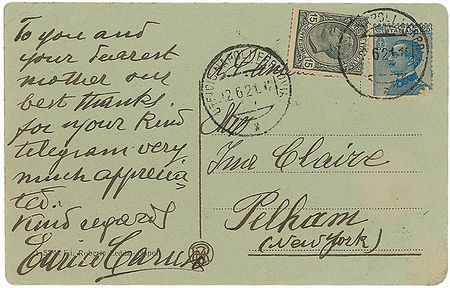 To you and
your dearest
mother our
best thanks
for your kind
telegram very
much apprecia-
ted..
Kind regards
Enrico Caruso
12.6.21
15
15
Ina Claire
Pelham
(New York)